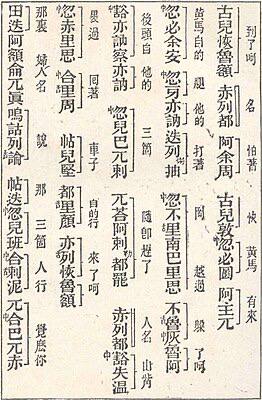 到了呵 名 怕著 快 黃馬 有來
古兒恢魯額 赤列都 阿余周 古兒敦忽中必圖 阿主兀
黃馬自的 腿 他的 打著 岡 越過 躱了呵
中忽必余安 中忽牙亦訥 迭列抽 中忽不里南巴里思 不魯灰魯阿
後頭自 他的 三箇 隨即趕了 人名 山嘴
豁亦訥察亦訥 中忽兒巴兀剌 兀荅阿剌都罷 赤列都豁失温
過 囘著 車子 自的行 來了呵
中忽赤里思 中合里周 帖兒堅都里顏 亦列恢魯額
那裏 婦人名 說 那 三箇人行 覺麽你
田迭訶額侖兀眞嗚詁列論 帖迭中忽兒班中合剌泥 兀中合巴兀赤